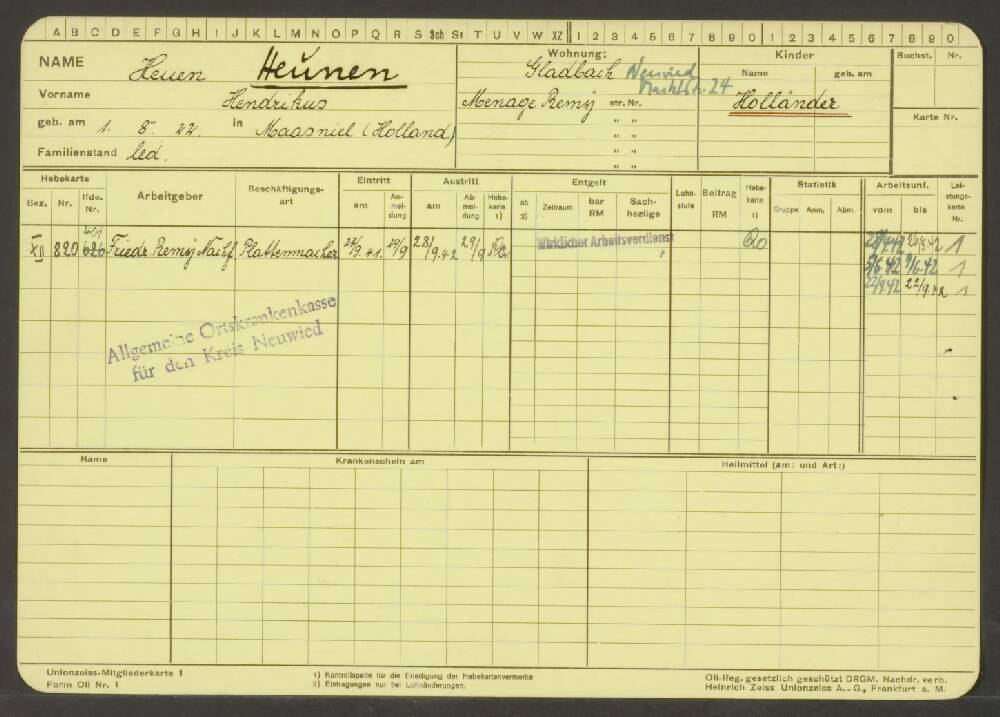 A B C D E F G H I J K L M N O P Q R S Sch St T U V W XZ 1 2 3 4 5 6 7 8 9 0 1 2 3 4 5 6 7 8 9 0
NAME Heuen Heunen
Vorname Hendrikus
geb. am 1. 8. 22. in Maasniel (Holland)
Familienstand led.
Wohnung:
Gladbach Neuwied
24
Menage Remy str. Nr.
" "
" "
" "
" "
Kinder
Name geb. am
Holländer
Buchst. Nr.
Karte Nr.
Hebekarte Arbeitgeber Beschäftigungsart Eintritt Austritt Entgelt Lohnstufe Beitrag RM Hebekarte 1) Statistik Arbeitsunf. Leistungskarte Nr.
Bez. Nr. lfde. Nr. am Anmeldung am Abmeldung Hebekarte 1) ab 2) Zeitraum bar RM Sachbezüge Gruppe Anm. Abm. vom bis
401
XII 820 626 Friedr. Remy Nachf. Plattenmacher 9.41. 19/9 28/9.42 29/9 Wirklicher Arbeitsverdienst 1
5/6.42 9/6.42 1
22/9.42 1
Allgemeine Ortskrankenkasse
für den Kreis Neuwied
Name Krankenschein am Heilmittel (am: und Art:)
Unionzeiss-Mitgliederkarte 1
Form Oli Nr. 1
1) Kontrollspalte für die Erledigung der Hebekartenvermerke
2) Eintragungen nur bei Lohnänderungen.
Oli-Reg. gesetzlich geschützt DRGM. Nachdr. verb.
Heinrich Zeiss Unionzeiss A.-G., Frankfurt a. M.